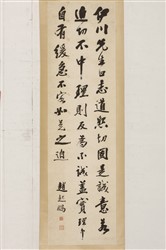 伊川先生曰志道懇切固是誠意若
迫切不中理則反為不誠蓋實理中
自有緩急不容如是之迫
趙